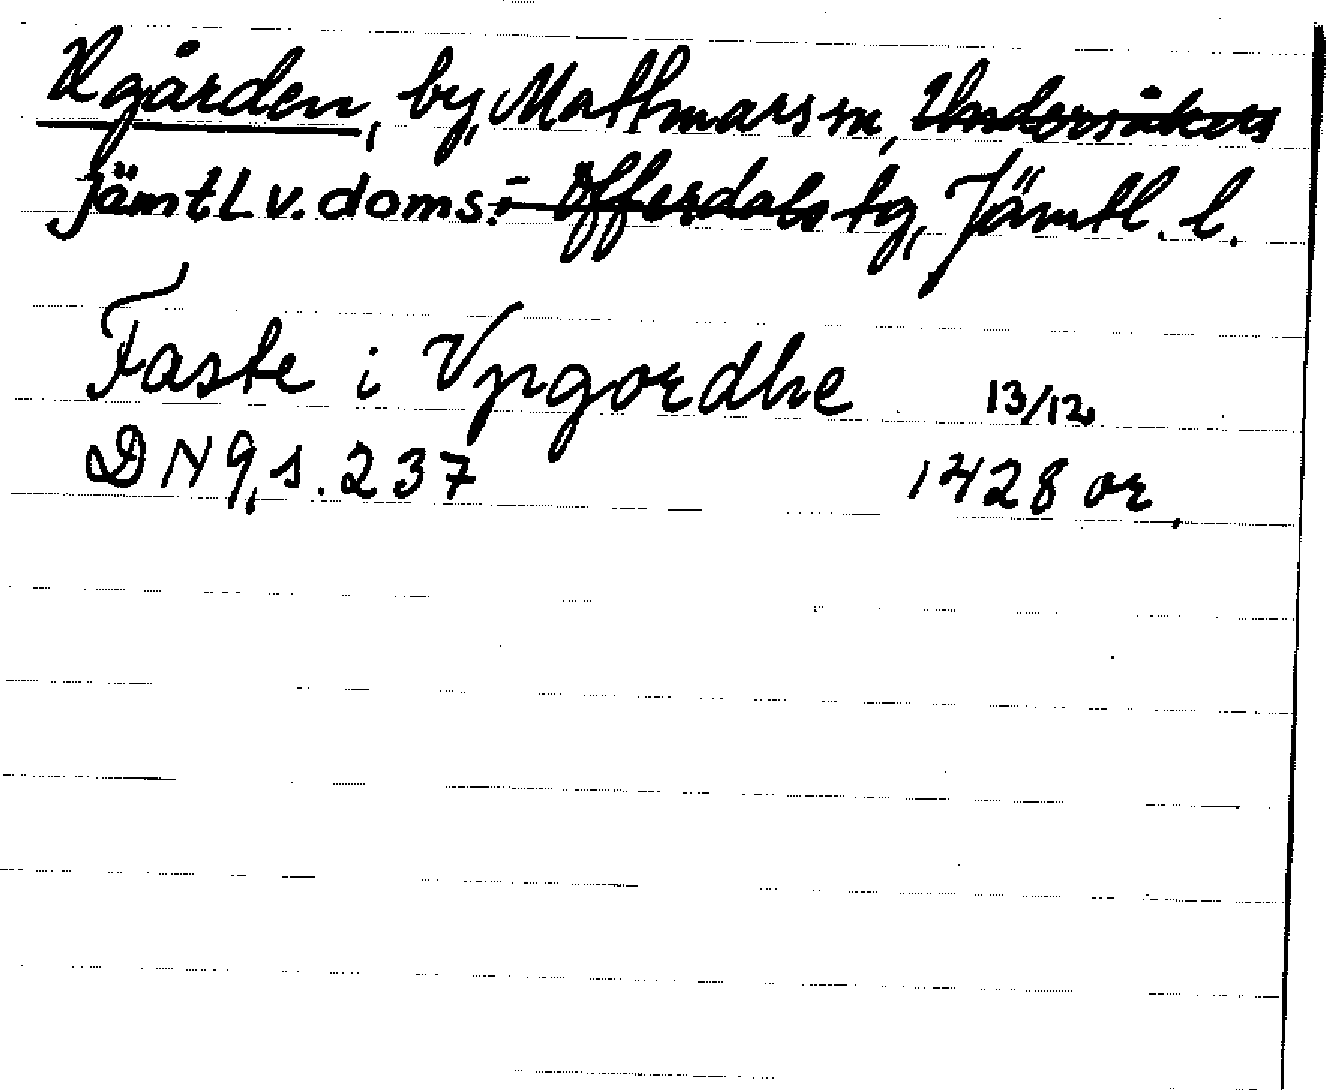 Ugården, by, Mattmars sn, Undersåkers
Jämtl. v. doms. i Offerdals tg, Jämtl. l.
Faste i Vpgordhe 13/12
DN 9, s. 237 1428 or.